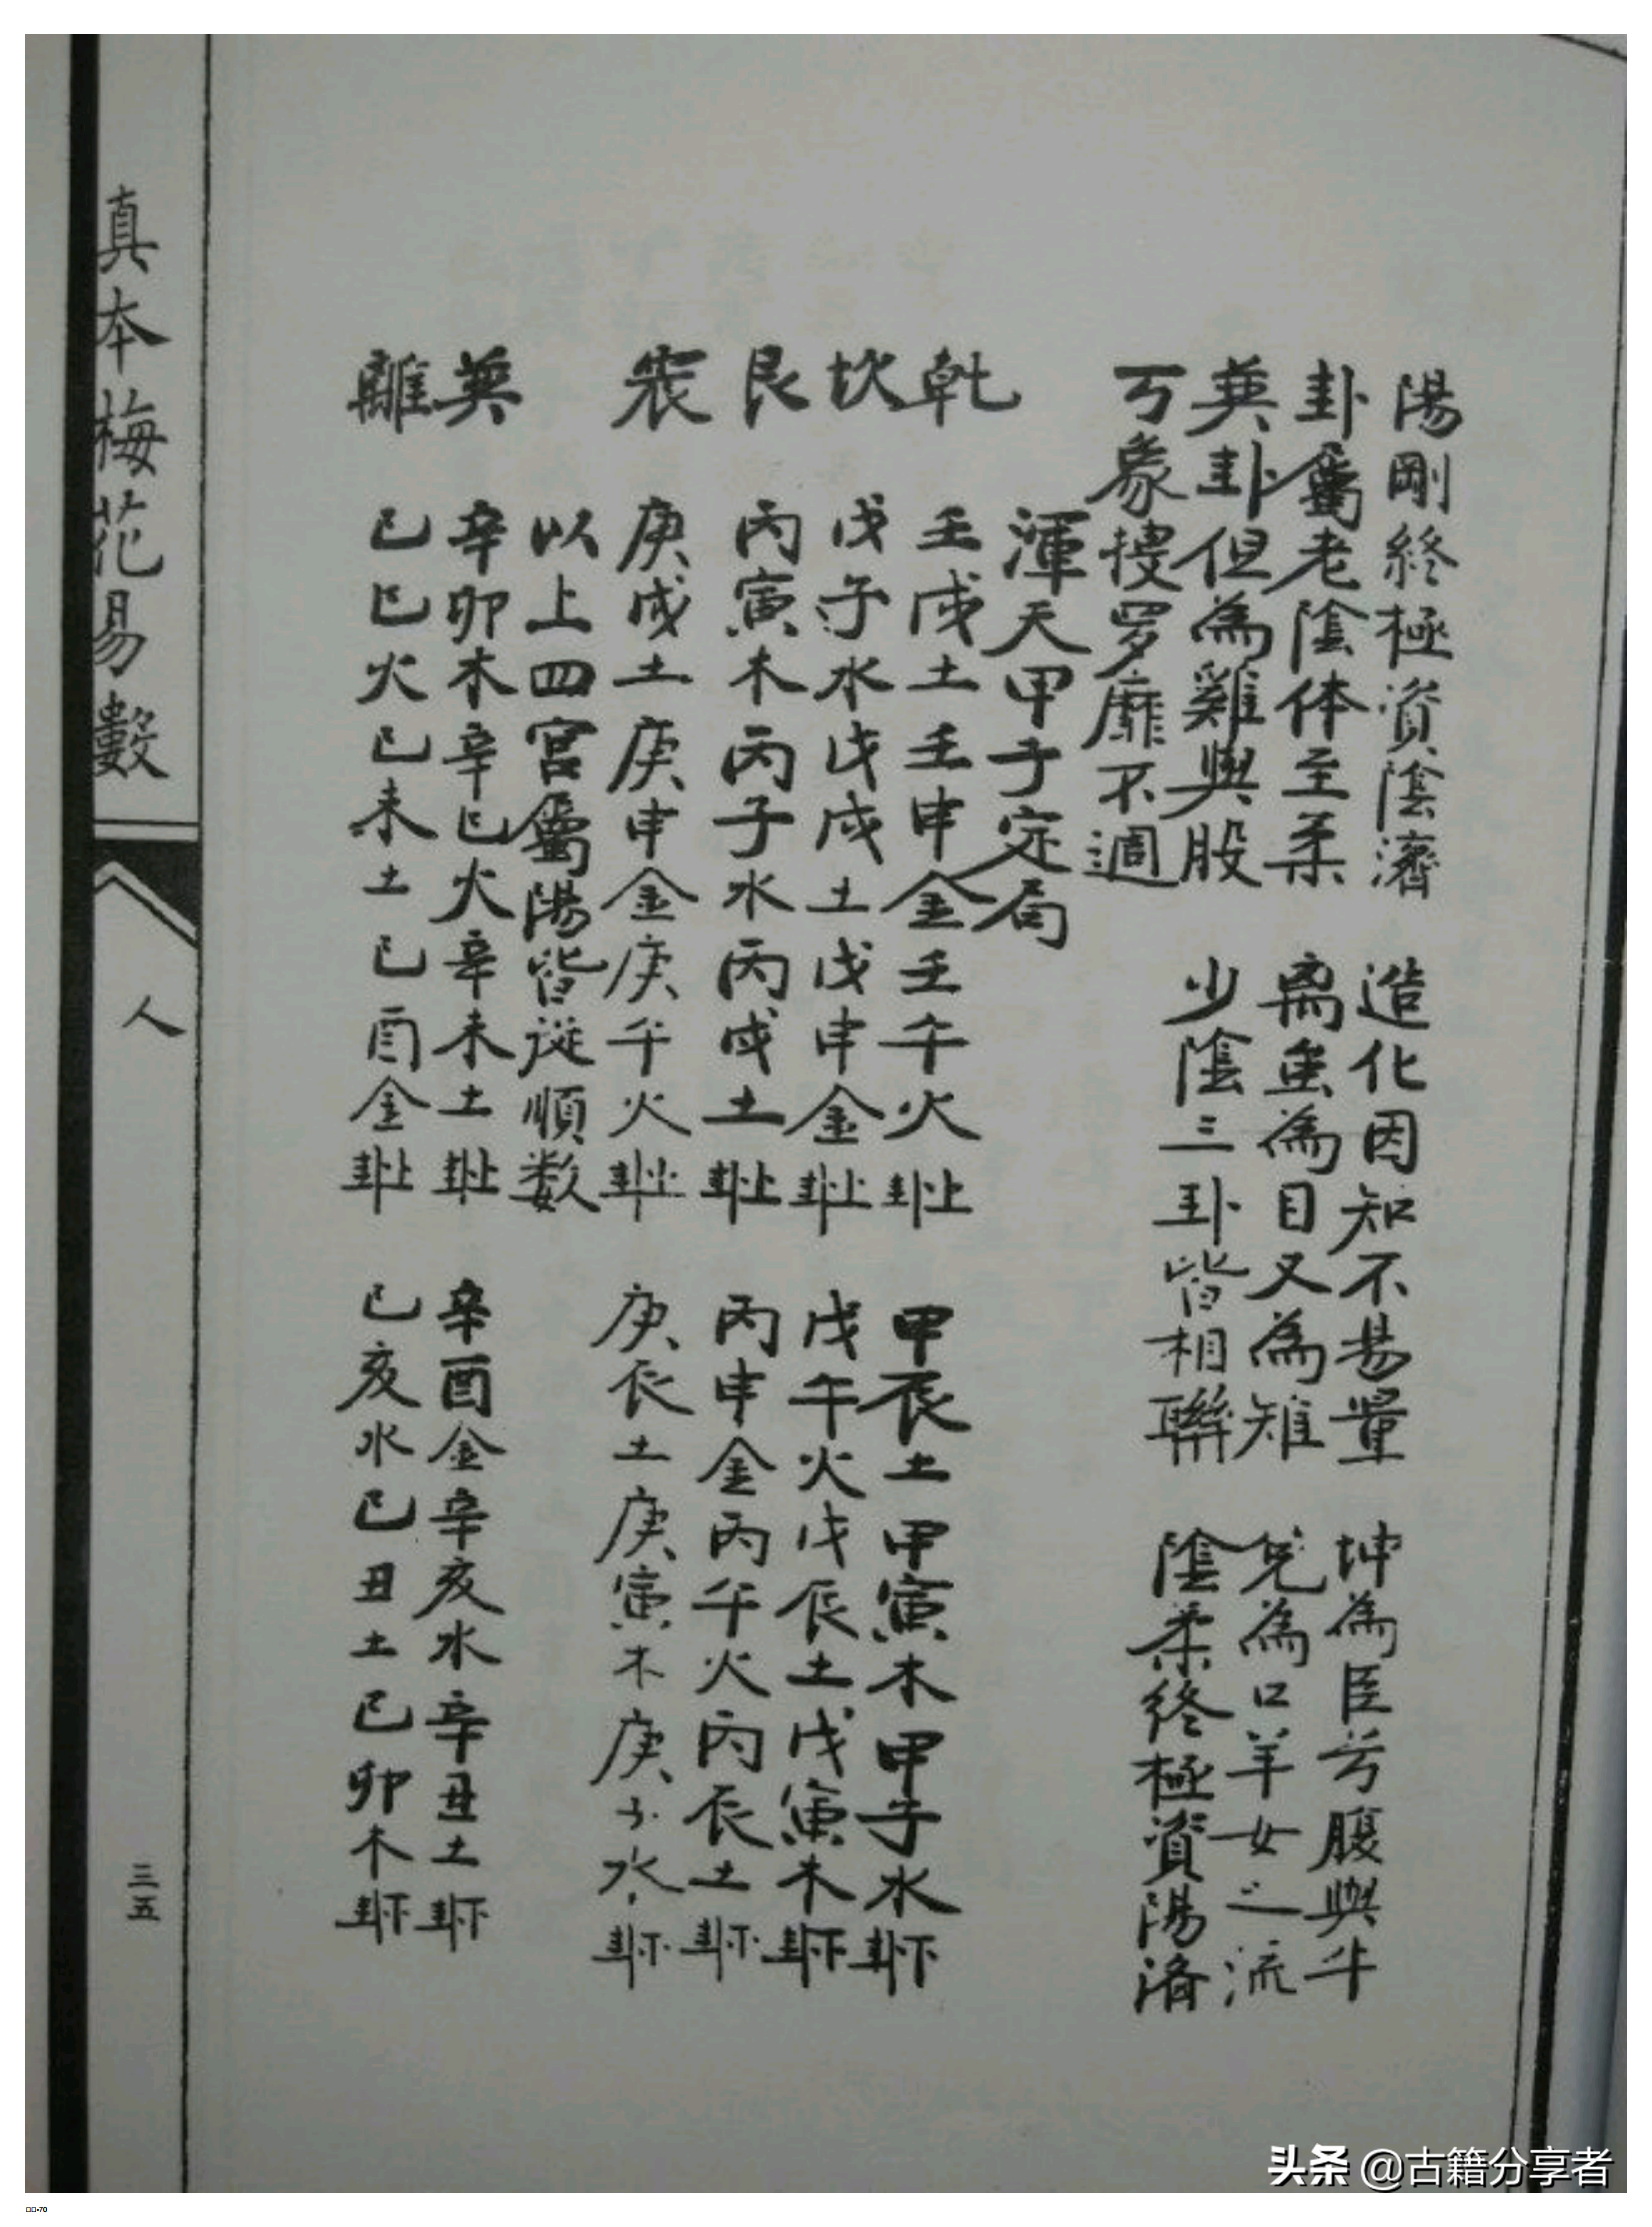 陽剛終極資陰濟 造化因知不易量 坤為臣兮腹與牛
卦屬老陰体至柔 离魚為目又為雉 兌為口羊女之流
巽卦但為雞與股 少陰三卦皆相聯 陰柔終極資陽済
丂象搜罗靡不週
渾天甲子定局
乾 壬戌土壬申金壬午火卦上 甲辰土甲寅木甲子水卦下
坎 戊子水戊戌土戊申金卦上 戊午火戊辰土戊寅木卦下
艮 丙寅木丙子水丙戌土卦上 丙申金丙午火丙辰土卦下
震 庚戌土庚申金庚午火卦上 庚辰土庚寅木庚子水卦下
以上四宮屬陽皆從順数
巽 辛卯木辛巳火辛未土卦上 辛酉金辛亥水辛丑土卦下
離 己巳火己未土己酉金卦上 己亥水己丑土己卯木卦下
真本梅花易數
人
三五
头条 @古籍分享者
-70